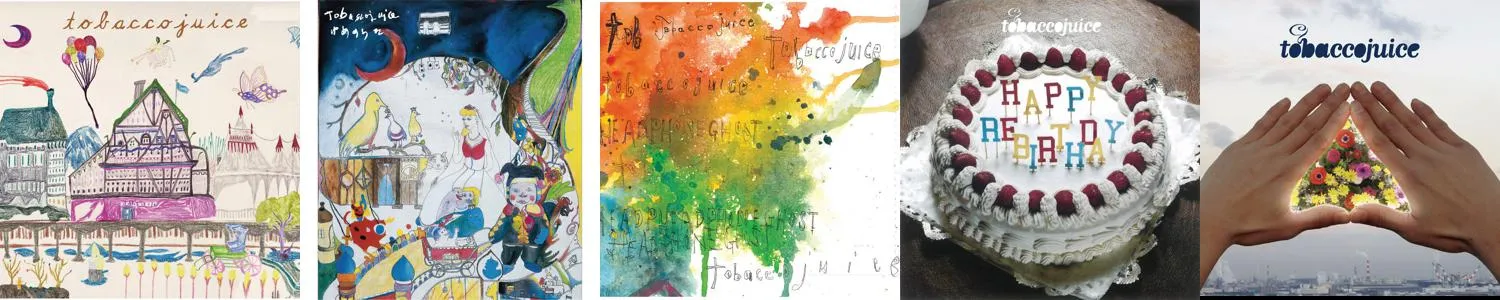 tobaccojuice
Tobaccojuice
けものみち
tob
Tobaccojuice
Tobaccojuice
tobaccojuice
HEADPHONEGHOST
HEADPHONEGHOST
tobaccojuice
tobaccojuice
HAPPY
REBIRTHDAY
tobaccojuice